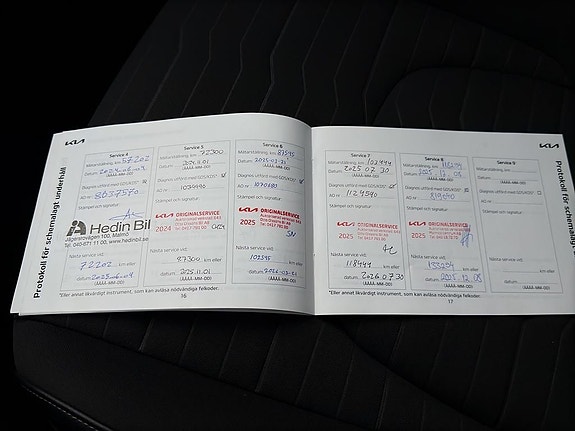 KIA
Protokoll för schemalagt underhåll
Service 4
Mätarställning, km 57202
Datum
(ÅÅÅÅ-MM-DD)
Diagnos utförd med GDS/KDS*
AO nr
Stämpel och signatur:
Hedin Bil
Jägersrovägen 100, Malmö
Tel. 040-671 11 00, www.hedinbil.se
Nästa service vid:
72202 km eller
datum 2025-06-04
(ÅÅÅÅ-MM-DD)
Service 5
Mätarställning, km 72300
Datum 2024.11.01
(ÅÅÅÅ-MM-DD)
Diagnos utförd med GDS/KDS*
AO nr 1039990
Stämpel och signatur:
KIA ORIGINALSERVICE
2024
Nästa service vid:
87300 km eller
datum 2025.11.01
(ÅÅÅÅ-MM-DD)
Service 6
Mätarställning, km 87345
Datum 2025-03-21
(ÅÅÅÅ-MM-DD)
Diagnos utförd med GDS/KDS*
AO nr 1070680
Stämpel och signatur:
KIA ORIGINALSERVICE
2025
SN
Nästa service vid:
102345 km eller
datum 2026-03-21
(ÅÅÅÅ-MM-DD)
*Eller annat likvärdigt instrument, som kan avläsa nödvändiga felkoder.
16
KIA
Protokoll för schemalagt underhåll
Service 7
Mätarställning, km 103444
Datum 2025 07 30
(ÅÅÅÅ-MM-DD)
Diagnos utförd med GDS/KDS*
AO nr 1124590
Stämpel och signatur:
KIA ORIGINALSERVICE
2025
Nästa service vid:
118444 km eller
datum 2026 07 30
(ÅÅÅÅ-MM-DD)
Service 8
Mätarställning, km
Datum 2025 12 08
(ÅÅÅÅ-MM-DD)
Diagnos utförd med GDS/KDS*
AO nr
Stämpel och signatur:
KIA ORIGINALSERVICE
2025
Nästa service vid:
km eller
datum
(ÅÅÅÅ-MM-DD)
Service 9
Mätarställning, km
Datum
(ÅÅÅÅ-MM-DD)
Diagnos utförd med GDS/KDS*
AO nr
Stämpel och signatur:
Nästa service vid:
km eller
datum
(ÅÅÅÅ-MM-DD)
*Eller annat likvärdigt instrument, som kan avläsa nödvändiga felkoder.
17